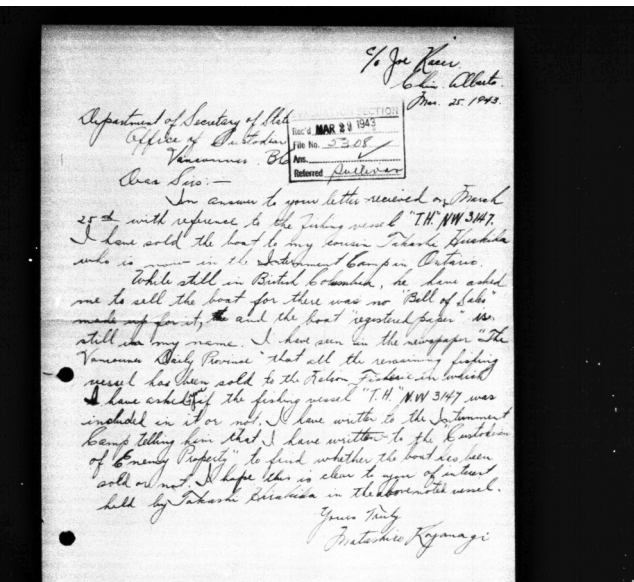 c/o Joe
Chin. Alberta.
Mar. 25. 1943.
Department of Secretary of State
Office of Custodian
Vancouver. BC
SECTION
Rec'd MAR 29 1943
File No. 5308
Ans.
Referred Sullivan
Dear Sirs:—
In answer to your letter recieved on March
25th with reference to the fishing vessel "T.H." NW 3147.
I have sold the boat to my cousin Takashi
who is now in the Internment Camp in Ontario.
While still in British Columbia, he have asked
me to sell the boat for there was no "Bill of Sales"
made up for it, and the boat "registered paper" is
still in my name. I have seen in the newspaper "The
Vancouver Daily Province" that all the remaining fishing
vessel has been sold to the Fisherie in which
I have asked if the fishing vessel "T.H." N.W 3147 was
included in it or not. I have writto to the Internment
Camp telling him that I have written to the "Custodian
of Enemy Property" to find whether the boat has been
sold or not. I hope this is clear to you of interest
held by Takashi in the above noted vessel.
Yours Truly
Koyanagi